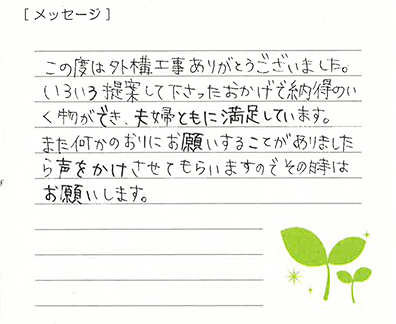 [メッセージ]
この度は外構工事ありがとうございました。
いろいろ提案して下さったおかげで納得のい
く物ができ、夫婦ともに満足しています。
また何かのおりにお願いすることがありました
ら声をかけさせてもらいますのでその時は
お願いします。